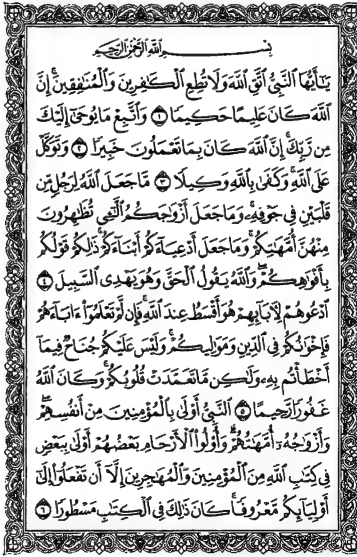 بِسْمِ اللَّهِ الرَّحْمَٰنِ الرَّحِيمِ
يَٰٓأَيُّهَا ٱلنَّبِىُّ ٱتَّقِ ٱللَّهَ وَلَا تُطِعِ ٱلْكَٰفِرِينَ وَٱلْمُنَٰفِقِينَ ۗ إِنَّ
ٱللَّهَ كَانَ عَلِيمًا حَكِيمًا ۝١ وَٱتَّبِعْ مَا يُوحَىٰٓ إِلَيْكَ
مِن رَّبِّكَ ۚ إِنَّ ٱللَّهَ كَانَ بِمَا تَعْمَلُونَ خَبِيرًا ۝٢ وَتَوَكَّلْ
عَلَى ٱللَّهِ ۚ وَكَفَىٰ بِٱللَّهِ وَكِيلًا ۝٣ مَّا جَعَلَ ٱللَّهُ لِرَجُلٍ مِّن
قَلْبَيْنِ فِى جَوْفِهِۦ ۚ وَمَا جَعَلَ أَزْوَٰجَكُمُ ٱلَّٰٓـِٔى تُظَٰهِرُونَ
مِنْهُنَّ أُمَّهَٰتِكُمْ ۚ وَمَا جَعَلَ أَدْعِيَآءَكُمْ أَبْنَآءَكُمْ ۚ ذَٰلِكُمْ قَوْلُكُم
بِأَفْوَٰهِكُمْ ۖ وَٱللَّهُ يَقُولُ ٱلْحَقَّ وَهُوَ يَهْدِى ٱلسَّبِيلَ ۝٤
ٱدْعُوهُمْ لِـَٔابَآئِهِمْ هُوَ أَقْسَطُ عِندَ ٱللَّهِ ۚ فَإِن لَّمْ تَعْلَمُوٓا۟ ءَابَآءَهُمْ
فَإِخْوَٰنُكُمْ فِى ٱلدِّينِ وَمَوَٰلِيكُمْ ۚ وَلَيْسَ عَلَيْكُمْ جُنَاحٌ فِيمَآ
أَخْطَأْتُم بِهِۦ وَلَٰكِن مَّا تَعَمَّدَتْ قُلُوبُكُمْ ۚ وَكَانَ ٱللَّهُ
غَفُورًا رَّحِيمًا ۝٥ ٱلنَّبِىُّ أَوْلَىٰ بِٱلْمُؤْمِنِينَ مِنْ أَنفُسِهِمْ ۖ
وَأَزْوَٰجُهُۥٓ أُمَّهَٰتُهُمْ ۗ وَأُو۟لُوا۟ ٱلْأَرْحَامِ بَعْضُهُمْ أَوْلَىٰ بِبَعْضٍ
فِى كِتَٰبِ ٱللَّهِ مِنَ ٱلْمُؤْمِنِينَ وَٱلْمُهَٰجِرِينَ إِلَّآ أَن تَفْعَلُوٓا۟ إِلَىٰٓ
أَوْلِيَآئِكُم مَّعْرُوفًا ۚ كَانَ ذَٰلِكَ فِى ٱلْكِتَٰبِ مَسْطُورًا ۝٦